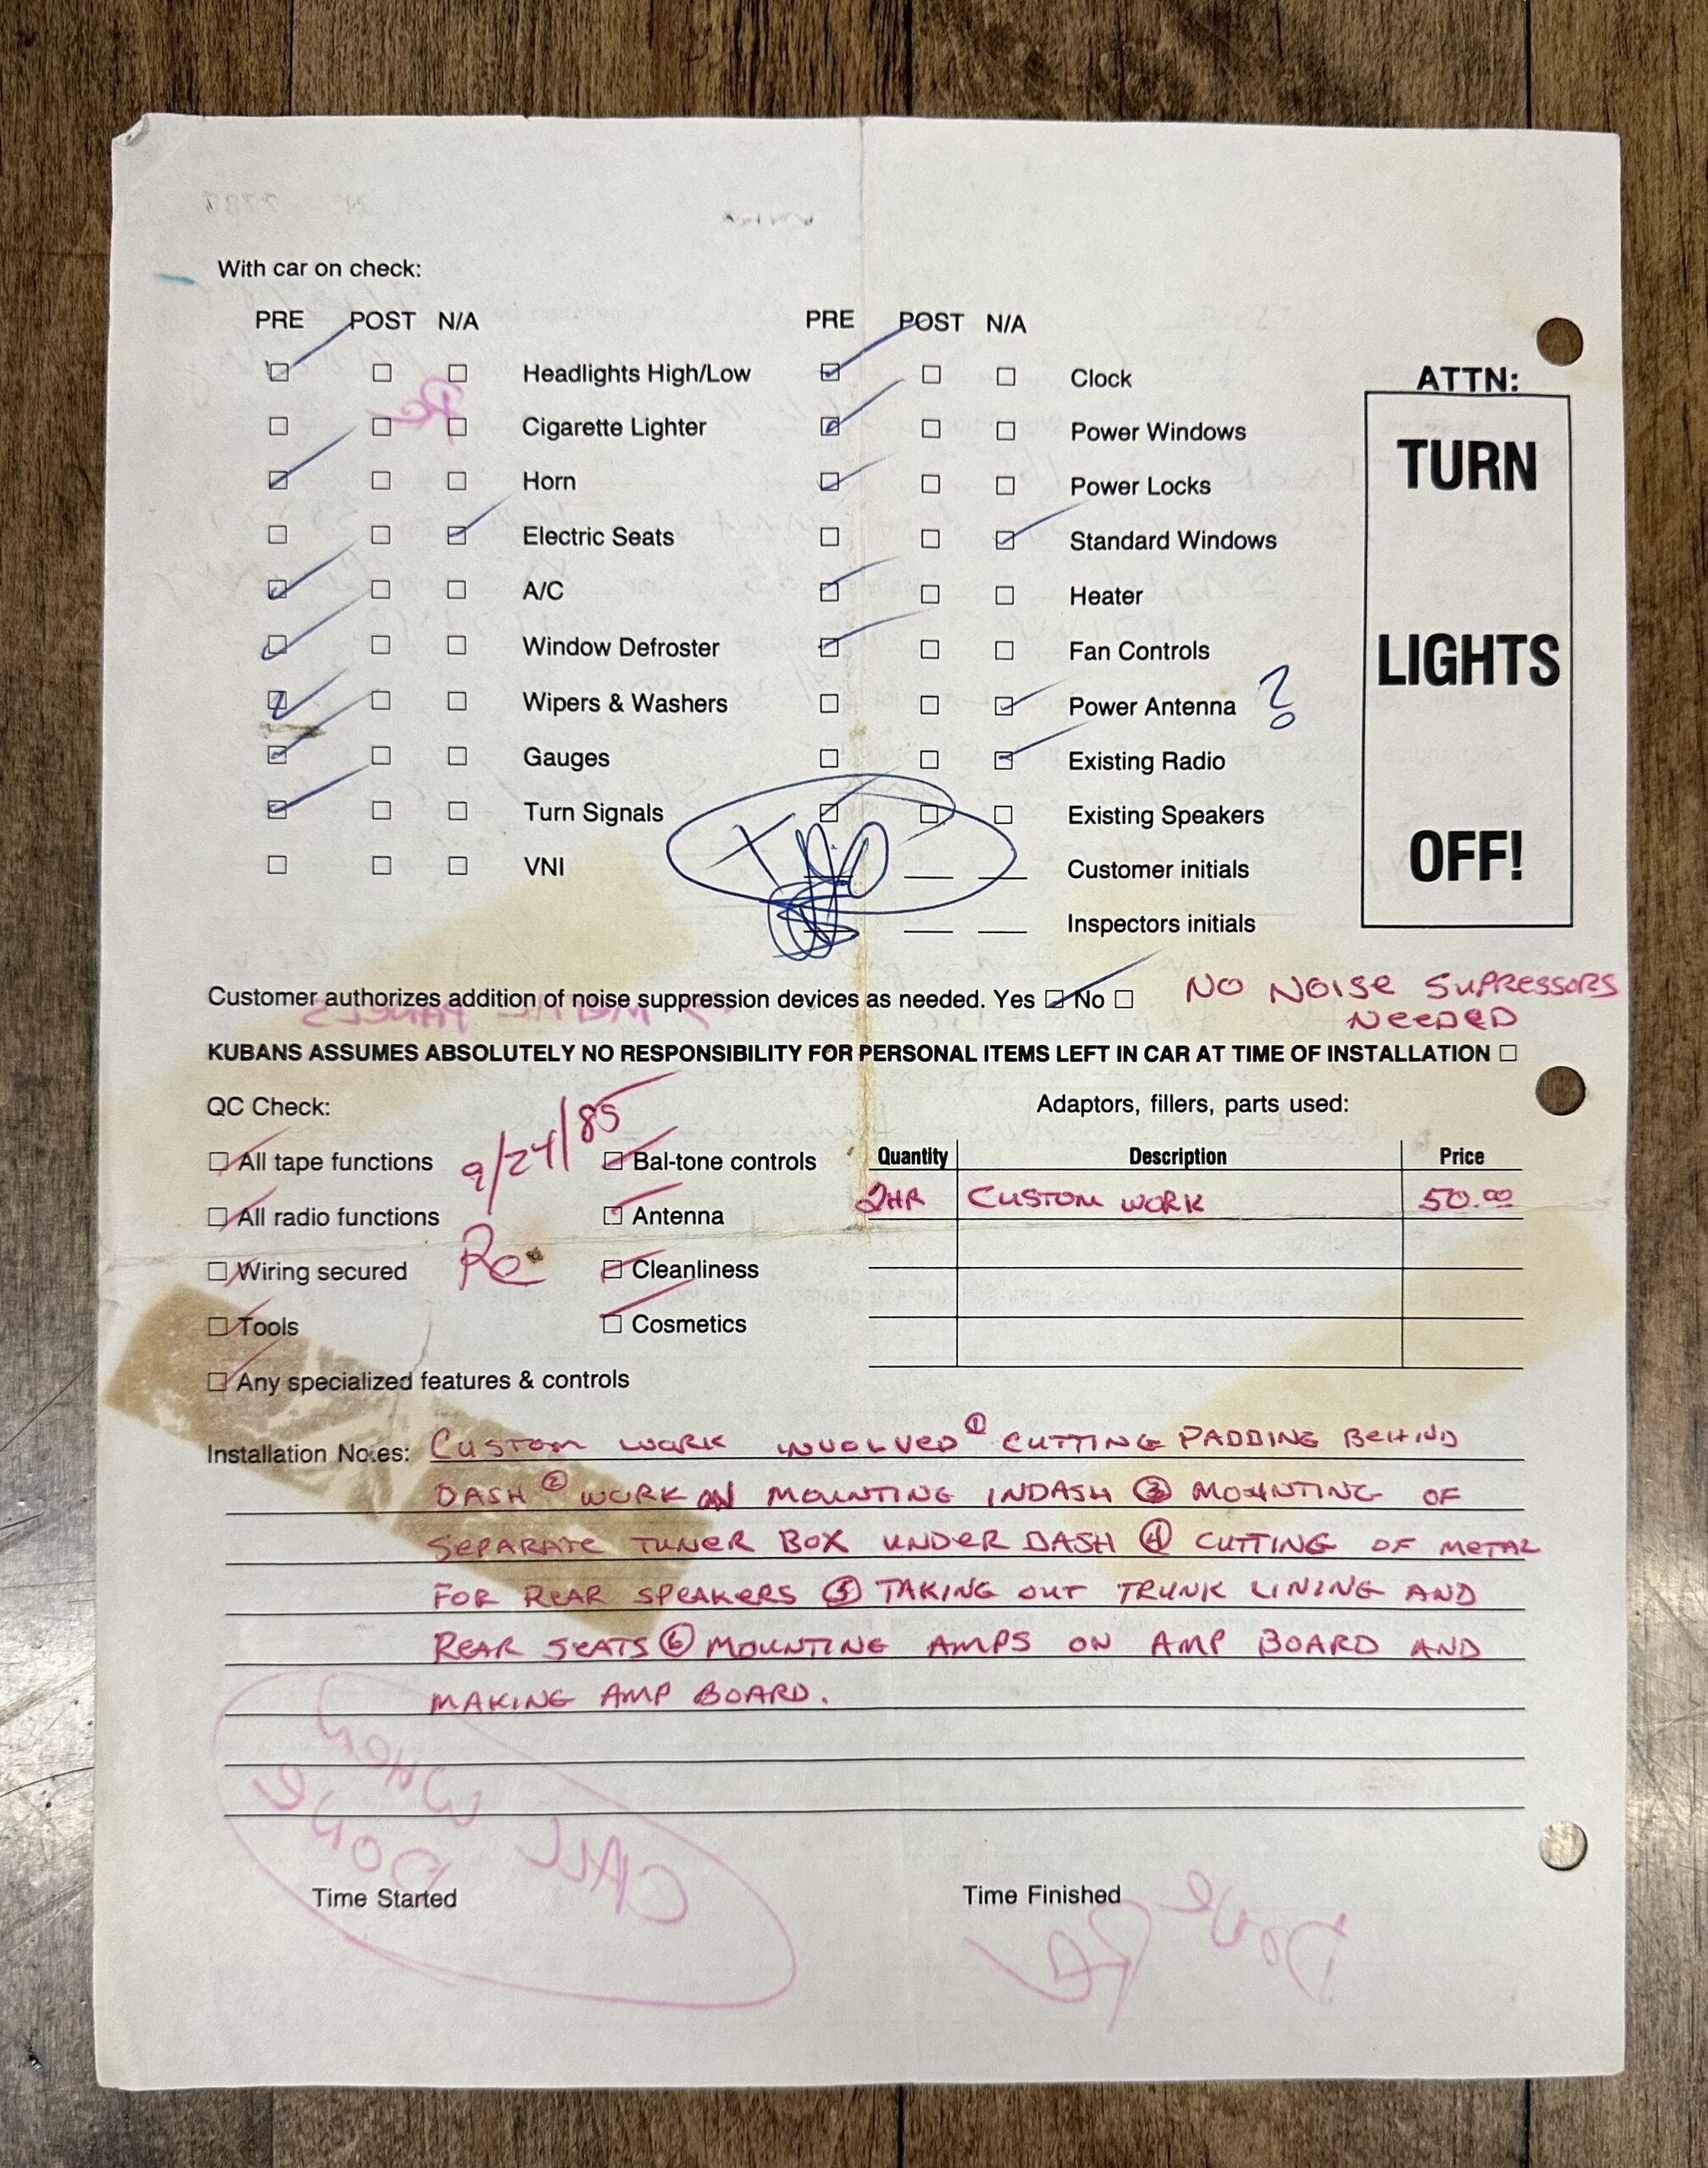 With car on check:
PRE POST N/A PRE POST N/A
Headlights High/Low Clock
Cigarette Lighter Power Windows
Horn Power Locks
Electric Seats Standard Windows
A/C Heater
Window Defroster Fan Controls
Wipers & Washers Power Antenna ?
Gauges Existing Radio
Turn Signals Existing Speakers
VNI Customer initials
Inspectors initials
ATTN:
TURN
LIGHTS
OFF!
Customer authorizes addition of noise suppression devices as needed. Yes No NO NOISE SUPRESSORS
NEEDED
KUBANS ASSUMES ABSOLUTELY NO RESPONSIBILITY FOR PERSONAL ITEMS LEFT IN CAR AT TIME OF INSTALLATION
QC Check:
All tape functions 9/24/85 Bal-tone controls
All radio functions Antenna
Wiring secured Cleanliness
Tools Cosmetics
Any specialized features & controls
Adaptors, fillers, parts used:
Quantity Description Price
2HR CUSTOM WORK 50.00
Installation Notes: CUSTOM WORK INVOLVED ① CUTTING PADDING BEHIND
DASH ② WORK ON MOUNTING INDASH ③ MOUNTING OF
SEPARATE TUNER BOX UNDER DASH ④ CUTTING OF METAL
FOR REAR SPEAKERS ⑤ TAKING OUT TRUNK LINING AND
REAR SEATS ⑥ MOUNTING AMPS ON AMP BOARD AND
MAKING AMP BOARD.
CALL WHEN
DONE
Time Started Time Finished
DONE